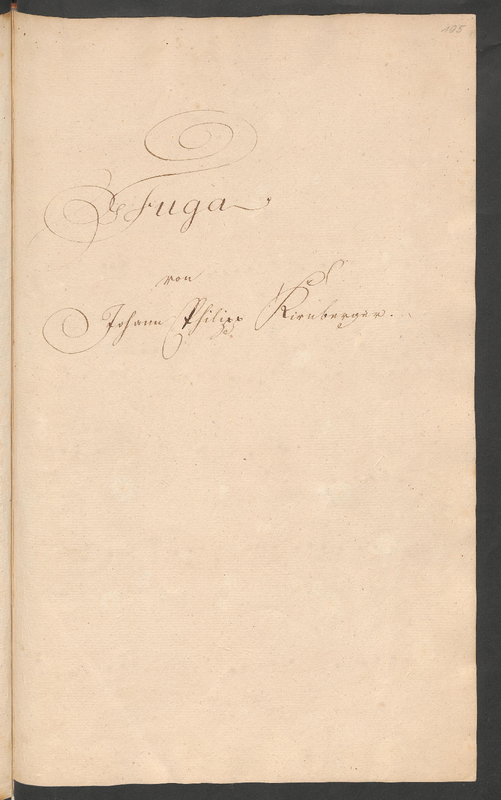 105
Fuga
von
Johann Philipp Kirnberger.